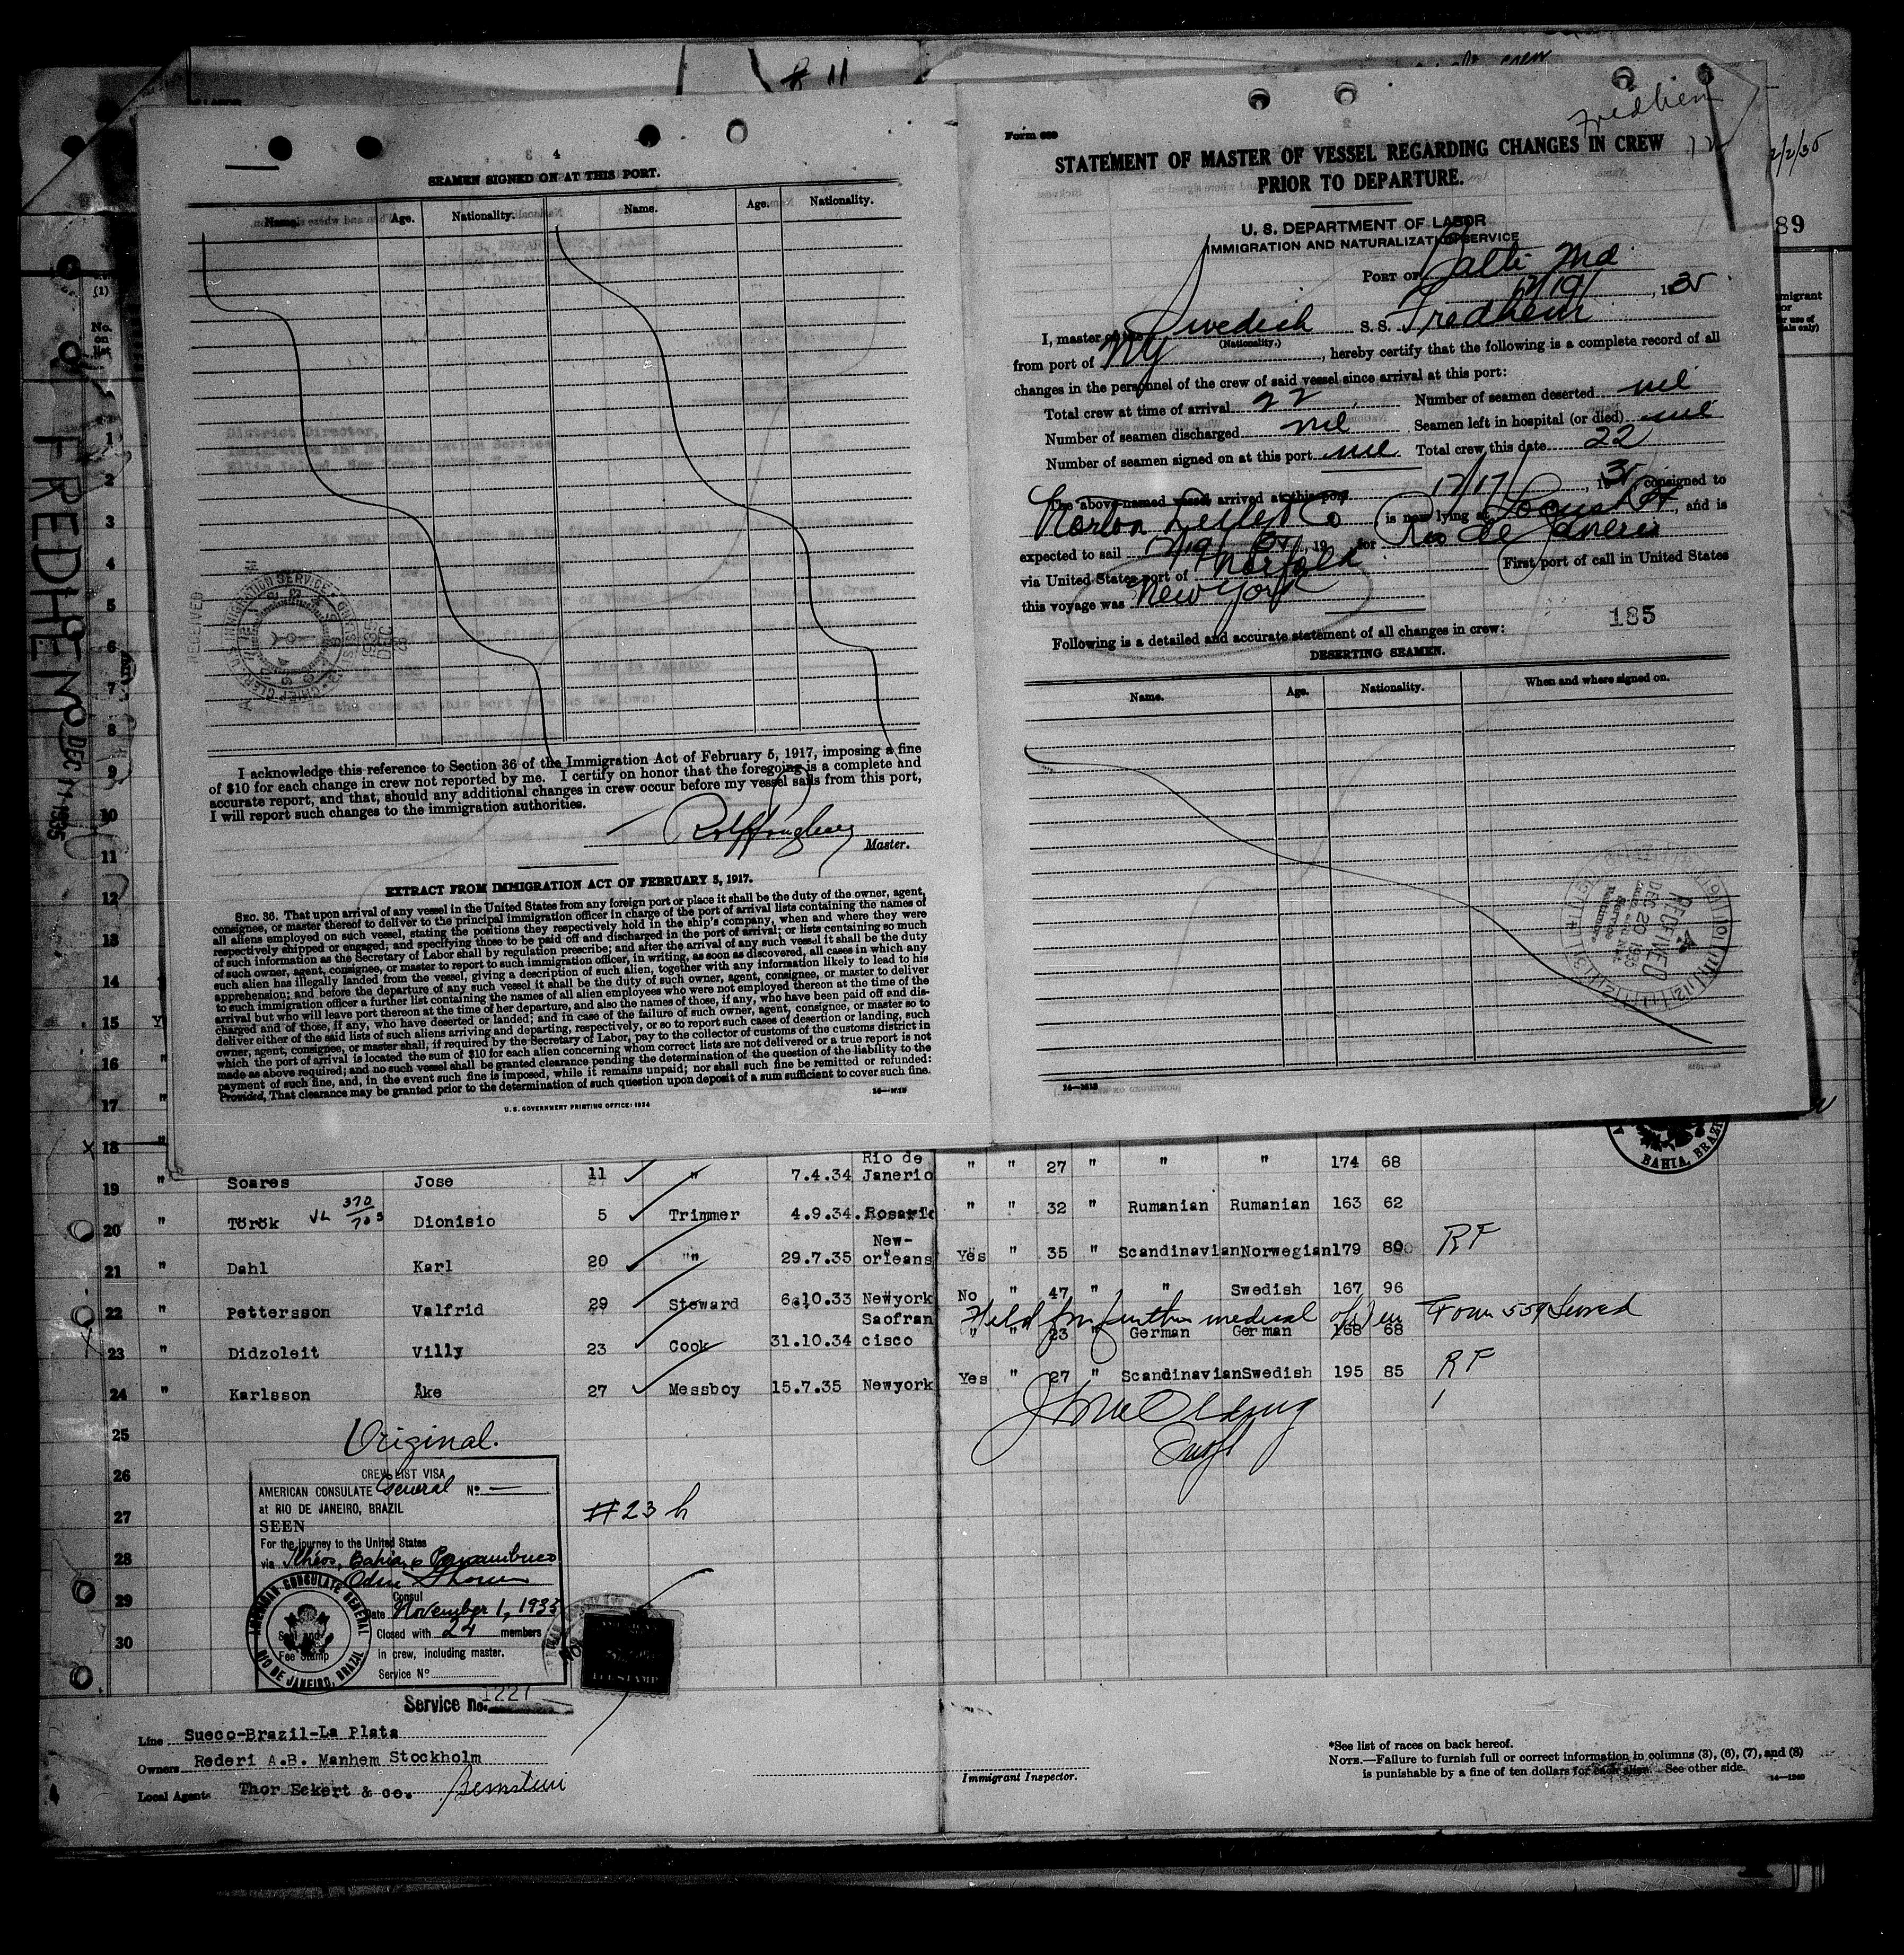 # 11
crew
4
SEAMEN SIGNED ON AT THIS PORT.
Name. Age. Nationality. Name. Age. Nationality.
I acknowledge this reference to Section 36 of the Immigration Act of February 5, 1917, imposing a fine
of $10 for each change in crew not reported by me. I certify on honor that the foregoing is a complete and
accurate report, and that, should any additional changes in crew occur before my vessel sails from this port,
I will report such changes to the immigration authorities.
Master.
EXTRACT FROM IMMIGRATION ACT OF FEBRUARY 5, 1917.
SEC. 36. That upon arrival of any vessel in the United States from any foreign port or place it shall be the duty of the owner, agent,
consignee, or master thereof to deliver to the principal immigration officer in charge of the port of arrival lists containing the names of
all aliens employed on such vessel, stating the positions they respectively hold in the ship's company, when and where they were
respectively shipped or engaged, and specifying those to be paid off and discharged in the port of arrival; or lists containing so much
of such information as the Secretary of Labor shall by regulation prescribe; and after the arrival of any such vessel it shall be the duty
of such owner, agent, consignee, or master to report to such immigration officer, in writing, as soon as discovered, all cases in which any
such alien has illegally landed from the vessel, giving a description of such alien, together with any information likely to lead to his
apprehension; and before the departure of any such vessel it shall be the duty of such owner, agent, consignee, or master to deliver
to such immigration officer a further list containing the names of all alien employees who were not employed thereon at the time of the
arrival but who will leave port thereon at the time of her departure, and also the names of those, if any, who have been paid off and dis-
charged and of those, if any, who have deserted or landed; and in case of the failure of such owner, agent, consignee, or master so to
deliver either of the said lists of such aliens arriving and departing, respectively, or so to report such cases of desertion or landing, such
owner, agent, consignee, or master shall, if required by the Secretary of Labor, pay to the collector of customs of the customs district in
which the port of arrival is located the sum of $10 for each alien concerning whom correct lists are not delivered or a true report is not
made as above required; and no such vessel shall be granted clearance pending the determination of the question of the liability to the
payment of such fine, and, in the event such fine is imposed, while it remains unpaid; nor shall such fine be remitted or refunded:
Provided, That clearance may be granted prior to the determination of such question upon deposit of a sum sufficient to cover such fine.
U. S. GOVERNMENT PRINTING OFFICE: 1934
Fredhem
Form 689
STATEMENT OF MASTER OF VESSEL REGARDING CHANGES IN CREW
PRIOR TO DEPARTURE.
U. S. DEPARTMENT OF LABOR
IMMIGRATION AND NATURALIZATION SERVICE
PORT OF Balto Md
12/19/, 1935
I, master of the Swedish S. S. Fredhem
(Nationality.)
from port of NY, hereby certify that the following is a complete record of all
changes in the personnel of the crew of said vessel since arrival at this port:
Total crew at time of arrival 22 Number of seamen deserted nil
Number of seamen discharged nil Seamen left in hospital (or died) nil
Number of seamen signed on at this port nil Total crew this date 22
The above-named vessel arrived at this port 12/17/, 1935, consigned to
Norton Lilly & Co is now lying at Locust Pt, and is
expected to sail 12/19, 19 for Rio de Janeiro
via United States port of Norfolk First port of call in United States
this voyage was New York
185
Following is a detailed and accurate statement of all changes in crew:
DESERTING SEAMEN.
Name. Age. Nationality. When and where signed on.
RECEIVED
DEC 20 1935
Baltimore
FREDHEM
DEC 11 1935
(1)
No. on list
89
1
2
3
4
5
6
7
8
9
10
11
12
13
14
15
16
17
18
BAHIA, BRAZIL
19 " Soares Jose 11 " 7.4.34 Rio de Janerio " " 27 " " " 174 68
20 " Török VL 370/703 Dionisio 5 Trimmer 4.9.34. Rosario " " 32 " Rumanian Rumanian 163 62
21 " Dahl Karl 20 "" 29.7.35 New-orleans Yes " 35 " Scandinavian Norwegian 179 80 RF
22 " Pettersson Valfrid 29 Steward 6.10.33 Newyork No " 47 " " Swedish 167 96
Held for further medical
23 " Didzoleit Villy 23 Cook 31.10.34 Saofrancisco " " 23 " German German 168 68
24 " Karlsson Åke 27 Messboy 15.7.35 Newyork Yes " 27 " Scandinavian Swedish 195 85 RF
25
26
27
28
29
30
Original.
CREW LIST VISA
AMERICAN CONSULATE General No. —
at RIO DE JANEIRO, BRAZIL
SEEN
For the journey to the United States
via Ilhéos, Bahia, & Pernambuco
Consul
Date November 1, 1935
Closed with 24 members
in crew, including master.
Service No
AMERICAN CONSULATE GENERAL
RIO DE JANEIRO, BRAZIL
Seal and
Fee Stamp
#23 h
Service No. 1227
Line Sueco-Brazil-La Plata
Owners Rederi A.B. Manhem Stockholm
Local Agents Thor Eckert & co. Bernstein
Immigrant Inspector.
*See list of races on back hereof.
NOTE.—Failure to furnish full or correct information in columns (3), (6), (7), and (8)
is punishable by a fine of ten dollars for each alien. See other side.
14—1240